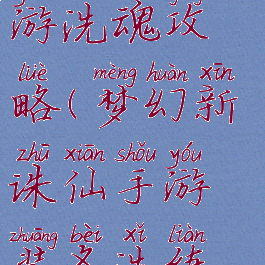 游洗魂攻
lüè mèng huàn xīn
略(梦幻新
zhū xiān shǒu yóu
诛仙手游
zhuāng bèi xǐ liàn
装备洗练